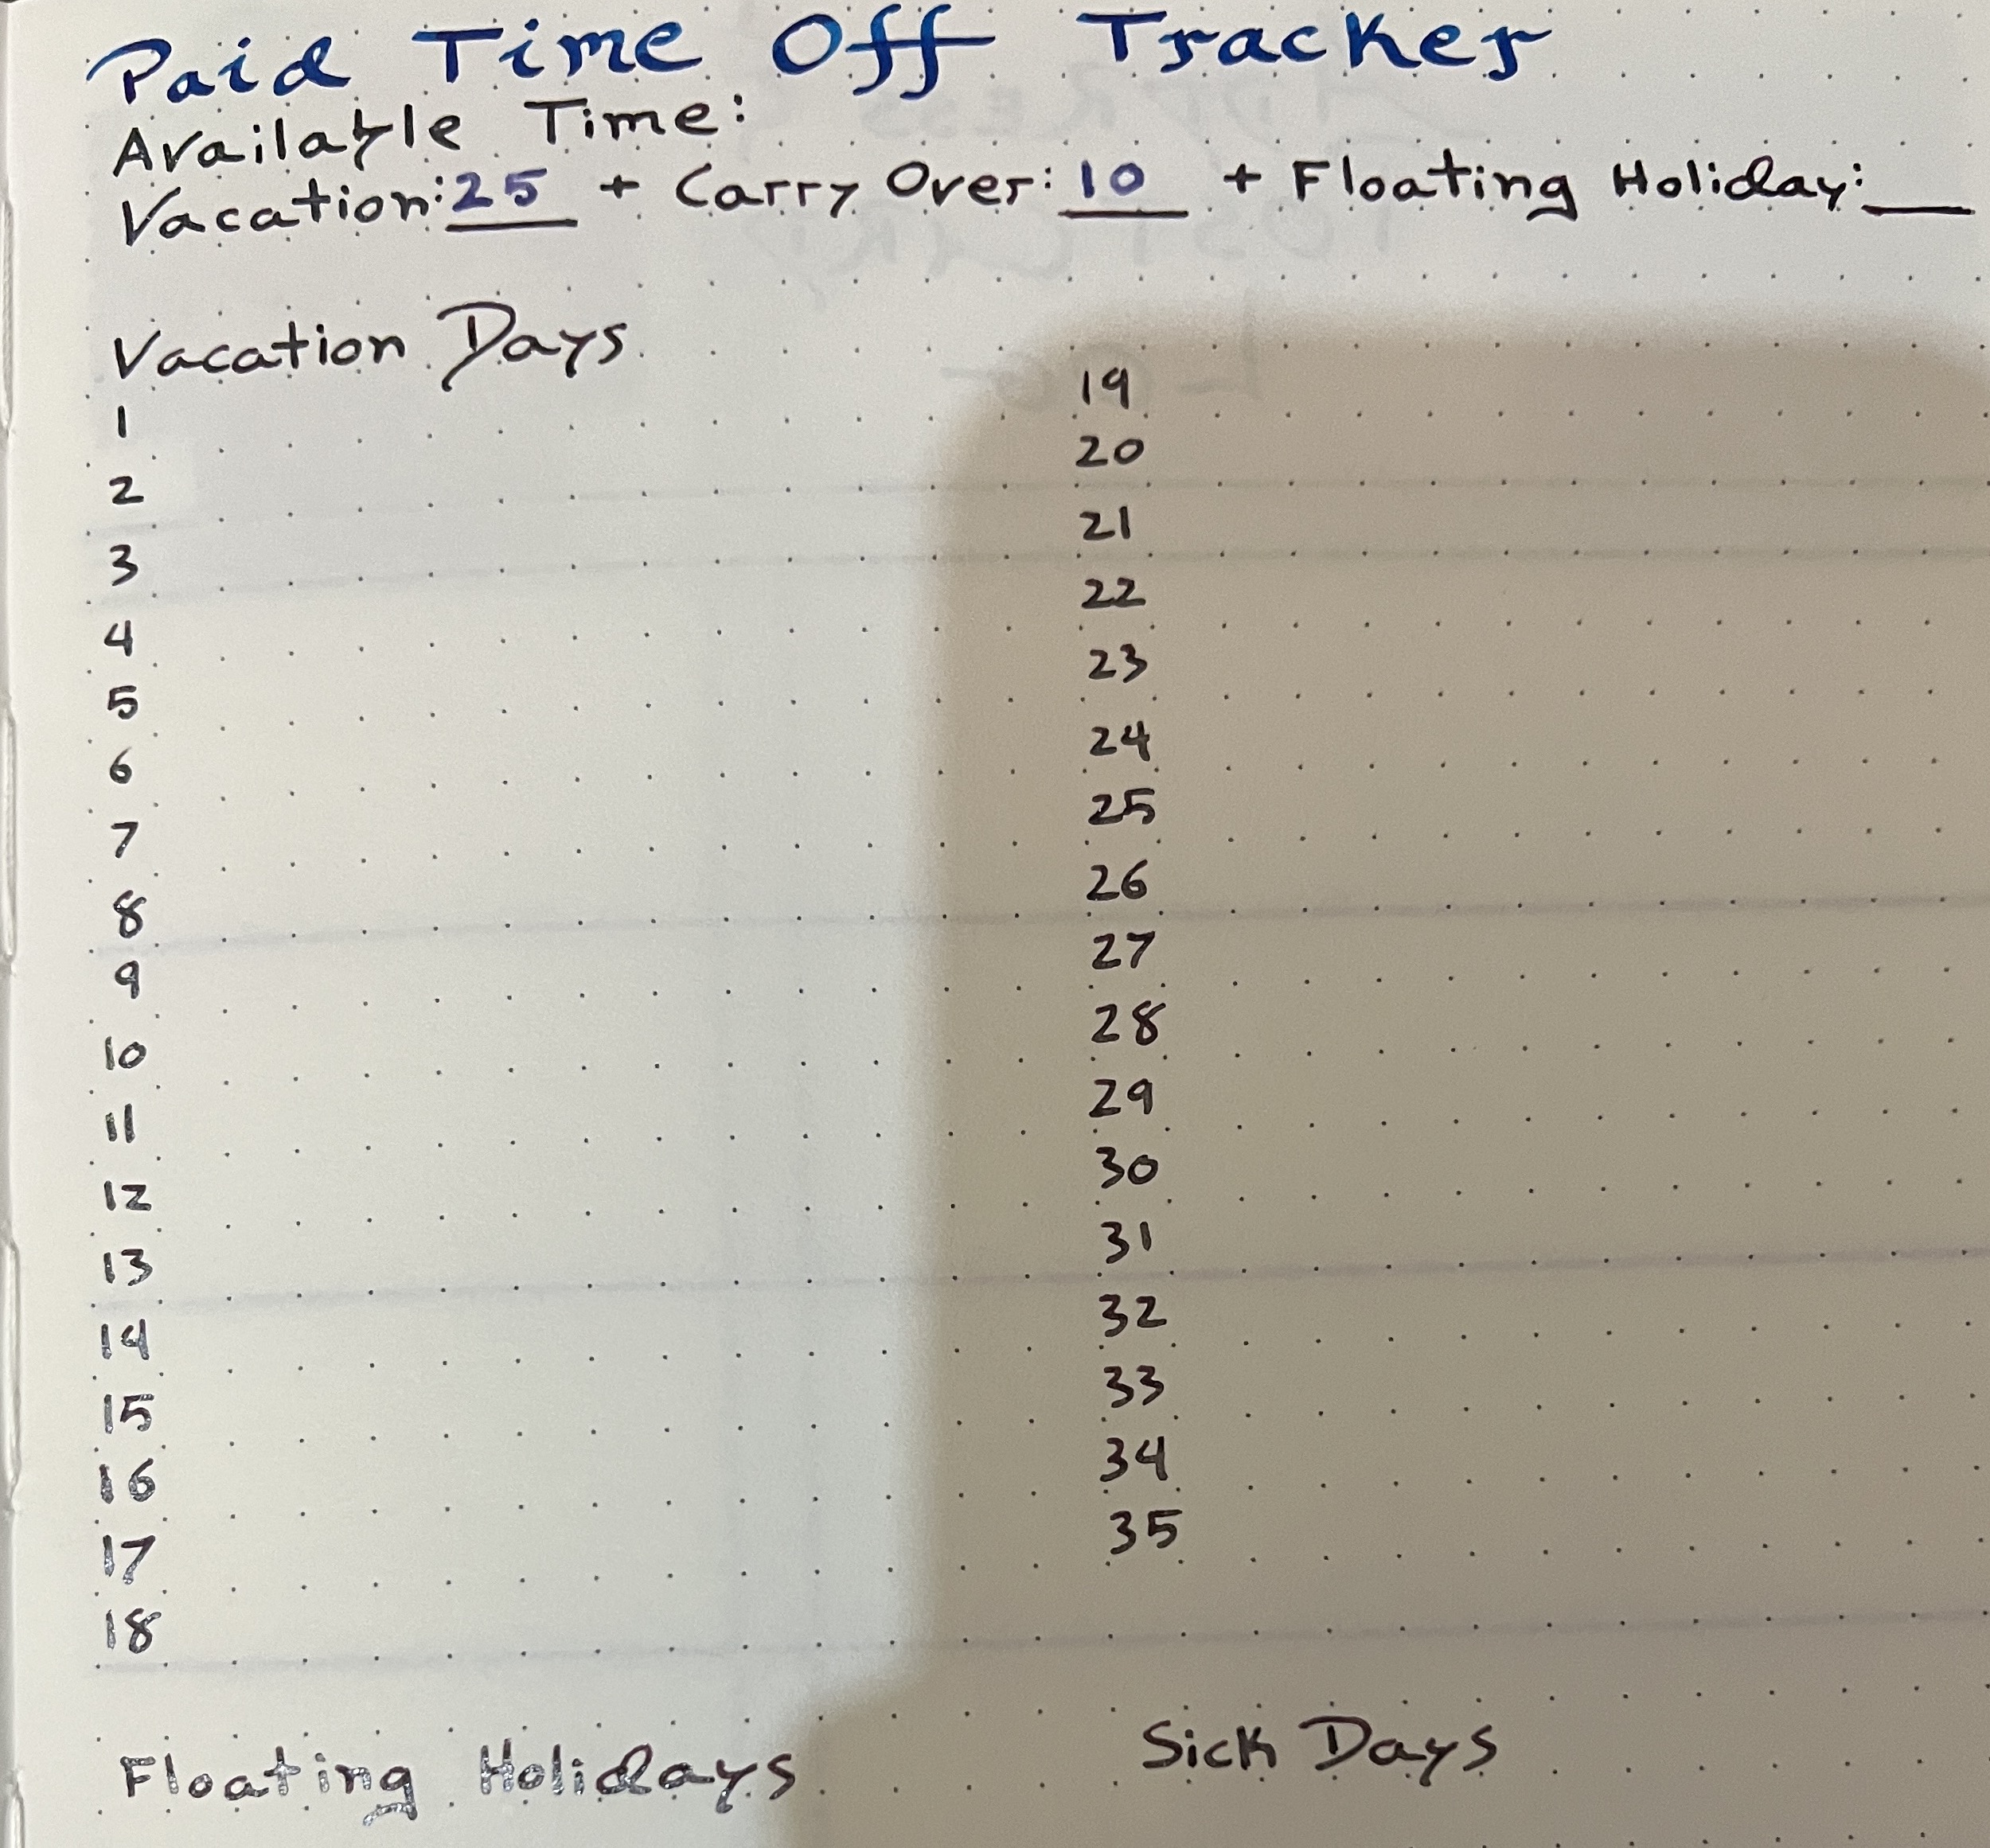 Paid Time Off Tracker
Available Time:
Vacation: 25 + Carry Over: 10 + Floating Holiday: __
Vacation Days
1
2
3
4
5
6
7
8
9
10
11
12
13
14
15
16
17
18
19
20
21
22
23
24
25
26
27
28
29
30
31
32
33
34
35
Floating Holidays
Sick Days